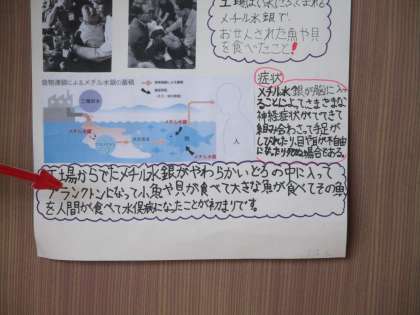 工場から出てくる
メチル水銀で、
おせんされた魚や貝
を食べたこと!
食物連鎖によるメチル水銀の蓄積
工場排水
メチル水銀
メチル水銀
人
症状
メチル水銀が脳に入
ることによってさまざまな
神経症状がでてきて
組み合わさって手足が
しびれたり、目や耳が不自由
になったり死ぬ場合もある。
工場からでたメチル水銀がやわらかいどろの中に入って
プランクトンになって小魚や貝が食べて大きな魚が食べてその魚
を人間が食べて水俣病になったことが初まりです。